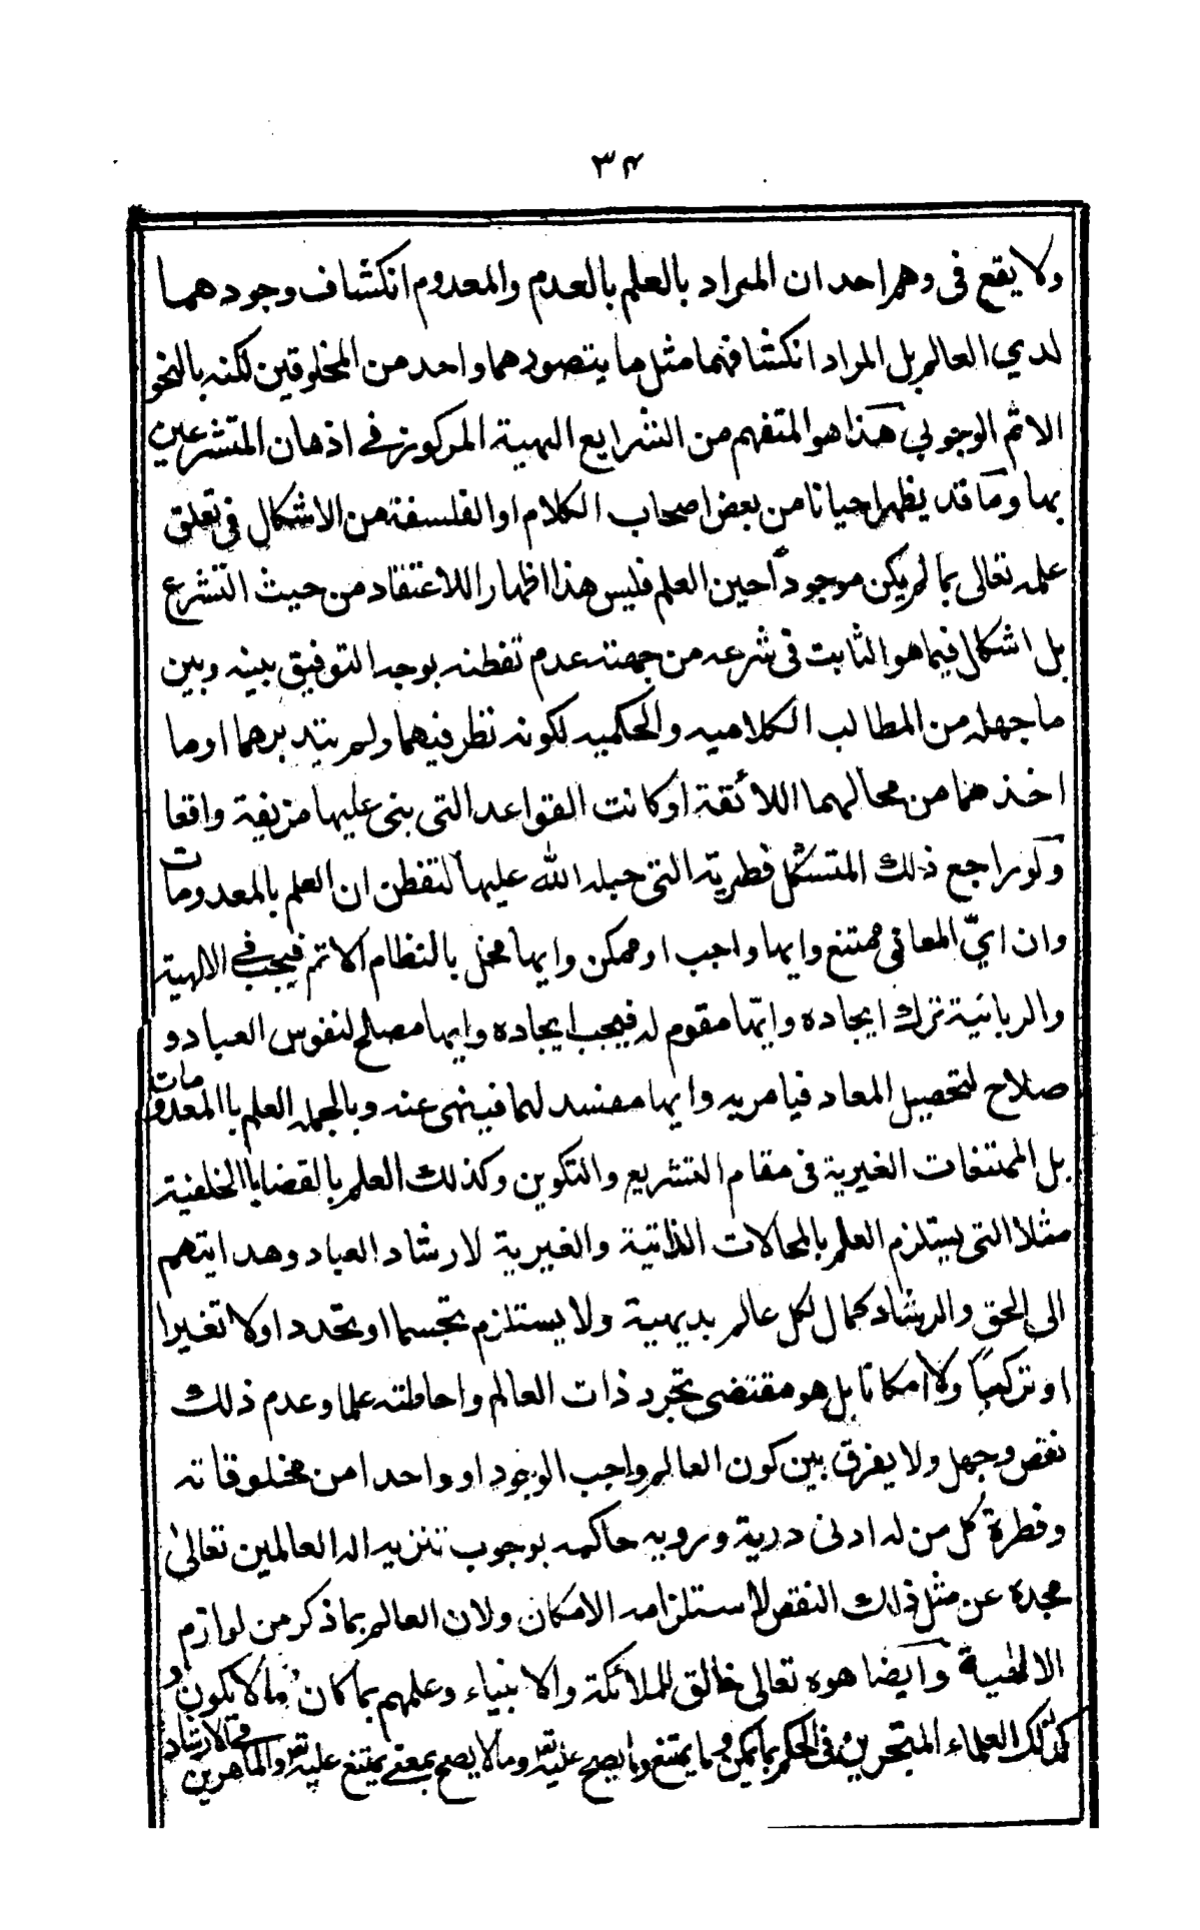 ٣٤
ولا يقع في وهم احد ان المراد بالعلم بالعدم والمعدوم انكشاف وجودهما
لدي العالم بل المراد انكشافهما مثل ما يتصورهما واحد من المخلوقين لكنه بالنحو
الاتم الوجوبي هذا هو المتفهم من الشرايع البهية المركوز في اذهان المتشرعين
بها وما قد يظهر احيانا من بعض اصحاب الكلام او الفلسفة من الاشكال في تعلق
علمه تعالى بما لم يكن موجوداً حين العلم فليس هذا اظهارا للاعتقاد من حيث التشرع
بل اشكال فيما هو الثابت في شرعه من جهة عدم تفطنه بوجه التوفيق بينه وبين
ما جهله من المطالب الكلاميه والحكميه لكونه نظر فيهما ولم يتدبرهما او ما
اخذهما من محالهما اللائقة او كانت القواعد التي بنى عليها مزيفة واقعا
ولو راجع ذلك المتشكل فطريته التي جبله الله عليها لتفطن ان العلم بالمعدومات
وان ايّ المعاني ممتنع وايها واجب او ممكن وايها مخل بالنظام الاتم فيجب في الالهية
والربانية ترك ايجاده وايّها مقوم له فيجب ايجاده وايها مصالح لنفوس العباد و
صلاح لتحصيل المعاد فيامر به وايها مفسد لهما فينهى عنه وبالجمله العلم بالمعدومات
بل الممتنعات الغيرية في مقام التشريع والتكوين وكذلك العلم بالقضايا الخلفية
مثلا التي يستلزم العلم بالمحالات الذاتية والغيرية لارشاد العباد وهدايتهم
الى الحق والرشاد كمال لكل عالم بديهية ولا يستلزم تجسما او تحددا ولا تغيرا
او تركيباً ولا امكانا بل هو مقتضى تجرد ذات العالم واحاطته علما وعدم ذلك
نقص وجهل ولا يفرق بين كون العالم واجب الوجود او واحدا من مخلوقاته
وفطرة كل من له ادنى درية ورويه حاكمه بوجوب تنزيه اله العالمين تعالى
مجده عن مثل ذلك النقص لاستلزامه الامكان ولان العالم بما ذكر من لوازم
الالهية وايضا هو تعالى خالق للملائكة والانبياء وعلمهم بما كان وما لا يكون و
كذلك العلماء المتبحرين في الحكم بما يمكن وما يمتنع وما يصح عليه تع وما لا يصح بمعنى يمتنع عليه تع والماهرين في الارشاد